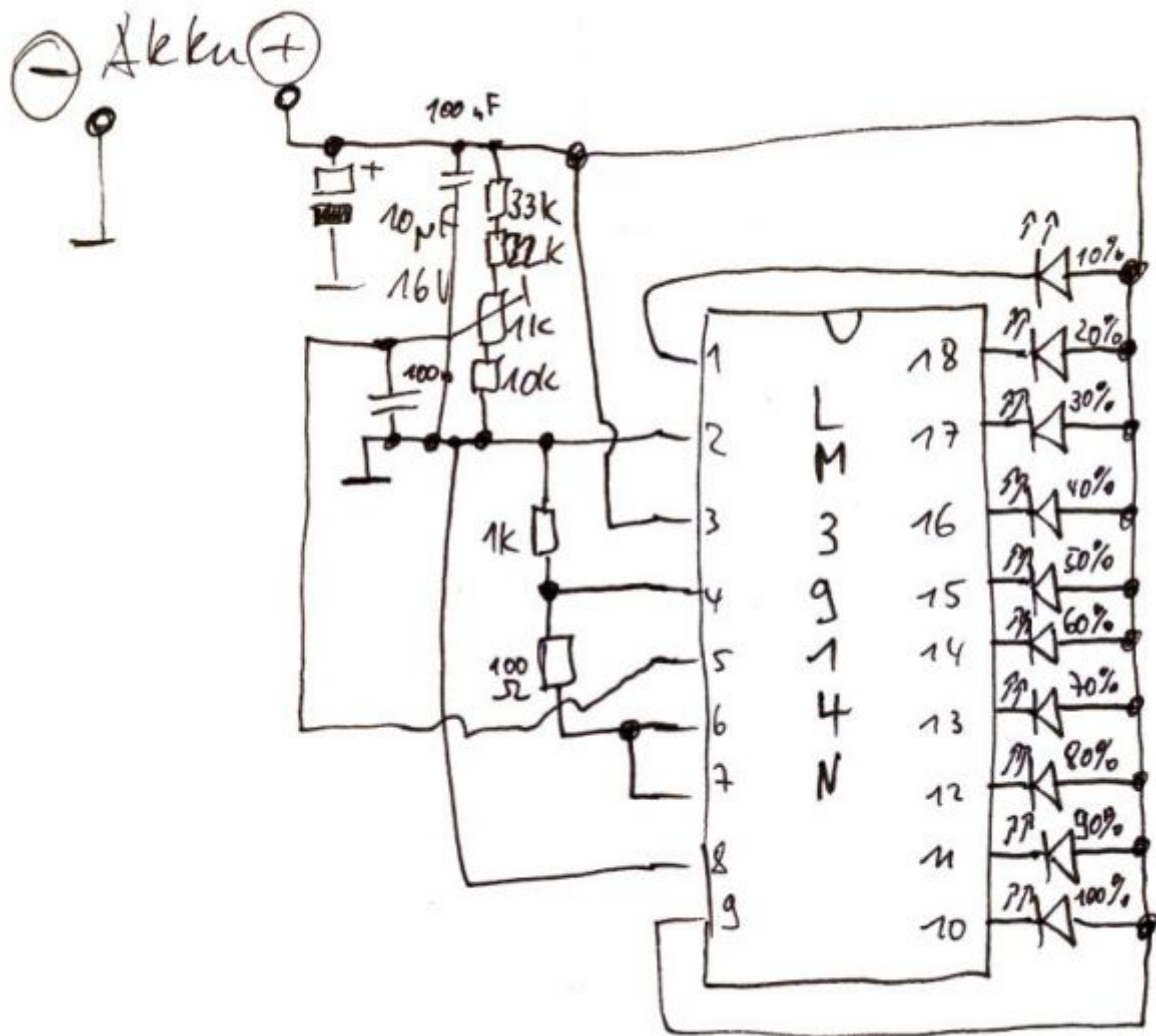 - Akku +
100 nF
+
10 µF
16V
33k
22k
1k
10k
100n
1k
100
Ω
LM3914N
1
2
3
4
5
6
7
8
9
18
17
16
15
14
13
12
11
10
10%
20%
30%
40%
50%
60%
70%
80%
90%
100%